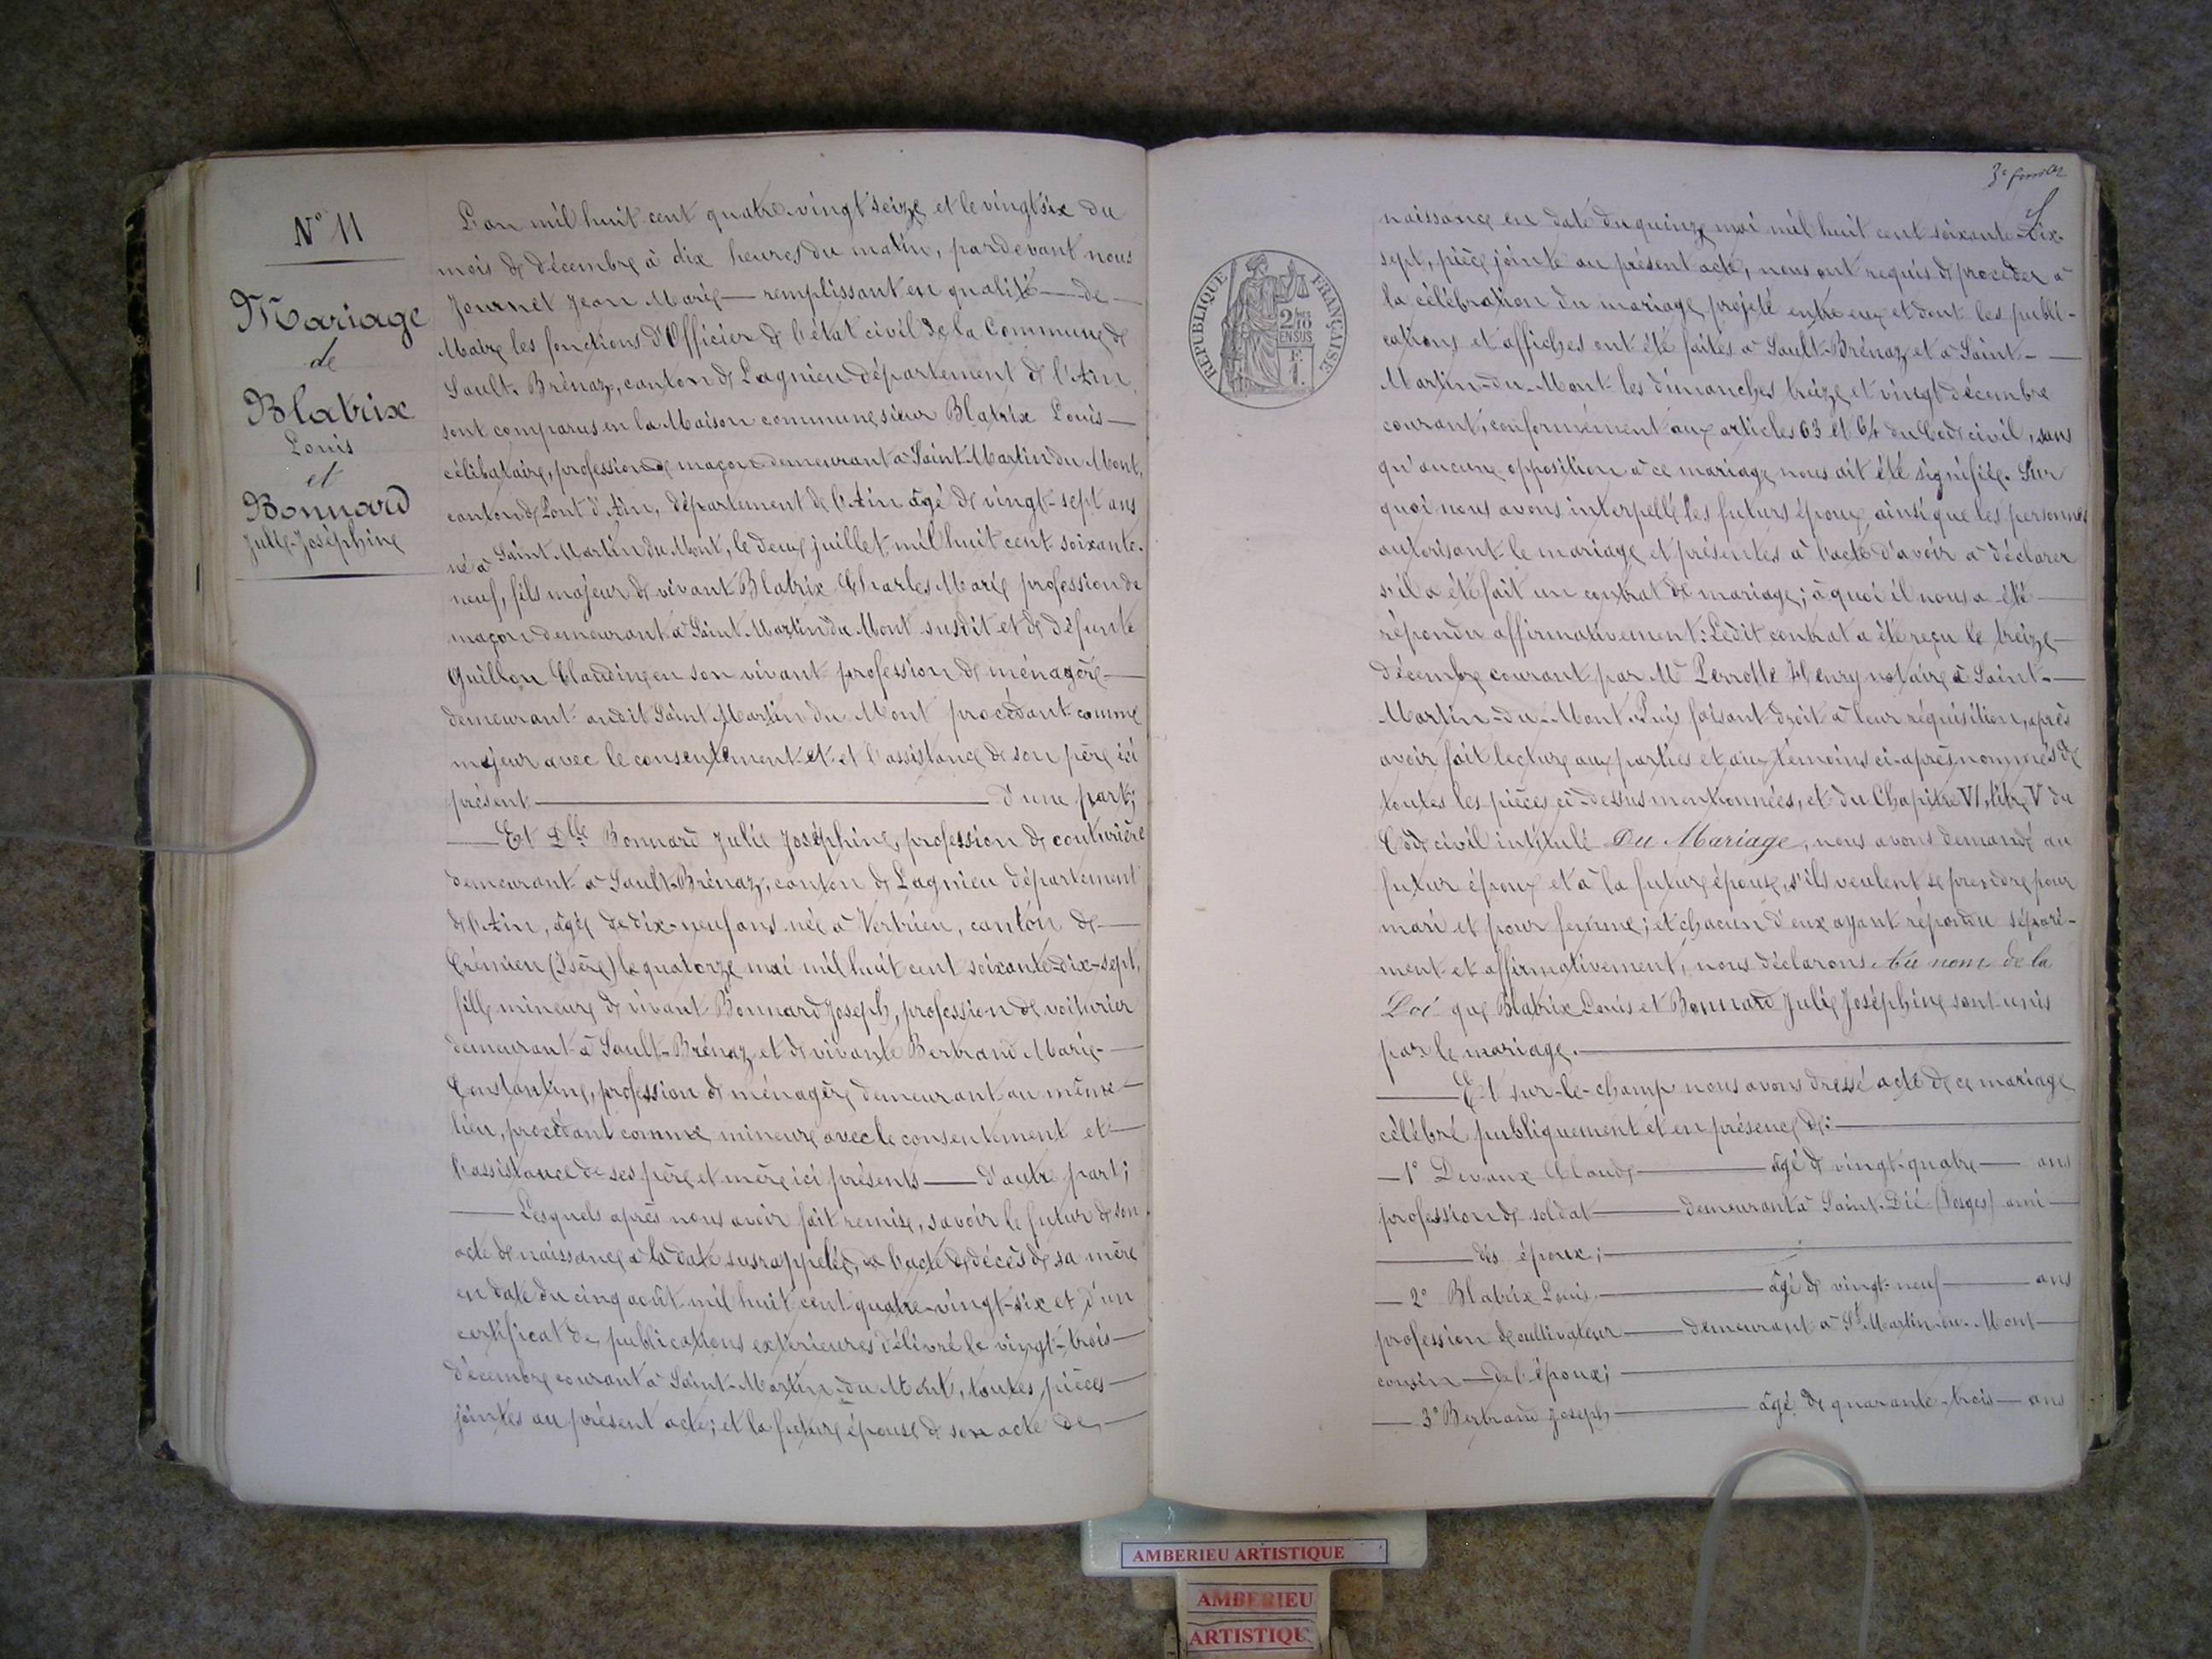 N° 11
Mariage
de
Blatrix
Louis
et
Bonnard
Julie-Joséphine
L'an mil huit cent quatre-vingt seize et le vingt six du
mois de décembre à dix heures du matin, par devant nous
Journet Jean Marie — remplissant en qualité — de —
Maire les fonctions d'Officier de l'état civil de la Commune de
Sault-Brénaz, canton de Lagnieu département de l'Ain,
sont comparus en la Maison commune sieur Blatrix Louis —
célibataire, profession de maçon demeurant à Saint Martin du Mont,
canton de Pont d'Ain, département de l'Ain âgé de vingt-sept ans
né à Saint Martin du Mont, le deux juillet mil huit cent soixante-
neuf, fils majeur de vivant Blatrix Charles Marie profession de
maçon demeurant à Saint Martin du Mont susdit et de défunte
Guillon Claudine en son vivant profession de ménagère —
demeurant audit Saint Martin du Mont procédant comme
majeur avec le consentement et et l'assistance de son père ici
présent — d'une part;
— Et Dlle Bonnard Julie Joséphine, profession de couturière
demeurant à Sault-Brénaz, canton de Lagnieu département
de l'Ain, âgée de dix-neuf ans née à Vertrieu, canton de —
Crémieu (Isère) le quatorze mai mil huit cent soixante-dix-sept,
fille mineure de vivant Bonnard Joseph, profession de voiturier
demeurant à Sault-Brénaz et de vivante Bertrand Marie —
Constantine, profession de ménagère demeurant au même —
lieu, procédant comme mineure avec le consentement et —
l'assistance de ses père et mère ici présents — d'autre part;
— Lesquels après nous avoir fait remise, savoir le futur de son
acte de naissance à la date susrappelée, de l'acte de décès de sa mère
en date du cinq août mil huit cent quatre-vingt-six et d'un
certificat de publications extérieures délivré le vingt-trois —
décembre courant à Saint-Martin-du Mont, toutes pièces —
jointes au présent acte; et la future épouse de son acte de —
REPUBLIQUE FRANÇAISE
2/10
EN SUS
1 F.
naissance en date du quinze mai mil huit cent soixante-dix-
sept, pièce jointe au présent acte, nous ont requis de procéder à
la célébration du mariage projeté entre eux et dont les publi-
cations et affiches ont été faites à Sault-Brénaz et à Saint- —
Martin-du-Mont les dimanches treize et vingt décembre
courant, conformément aux articles 63 et 64 du Code civil, sans
qu'aucune opposition à ce mariage nous ait été signifiée. Sur
quoi nous avons interpellé les futurs époux, ainsi que les personnes
autorisant le mariage et présentes à l'acte d'avoir à déclarer
s'il a été fait un contrat de mariage; à quoi il nous a été —
répondu affirmativement: Ledit contrat a été reçu le treize —
décembre courant par Me Perrotte Henry notaire à Saint- —
Martin-du-Mont. Puis faisant droit à leur réquisition, après
avoir fait lecture aux parties et aux témoins ci-après nommés de
toutes les pièces ci-dessus mentionnées, et du Chapitre VI, titre V du
Code civil intitulé Du Mariage, nous avons demandé au
futur époux et à la future épouse, s'ils veulent se prendre pour
mari et pour femme; et chacun d'eux ayant répondu séparé-
ment et affirmativement, nous déclarons Au nom de la
Loi que Blatrix Louis et Bonnard Julie Joséphine sont unis
par le mariage. —
— Et sur-le-champ nous avons dressé acte de ce mariage
célébré publiquement et en présence de: —
— 1° Devaux Claude — âgé de vingt-quatre — ans
profession de soldat — demeurant à Saint-Dié (Vosges) ami —
— des époux; —
— 2° Blatrix Louis — âgé de vingt-neuf — ans
profession de cultivateur — demeurant à St Martin-du-Mont —
cousin — de l'époux; —
— 3° Bertrand Joseph — âgé de quarante-trois — ans
AMBERIEU ARTISTIQUE
AMBERIEU
ARTISTIQUE